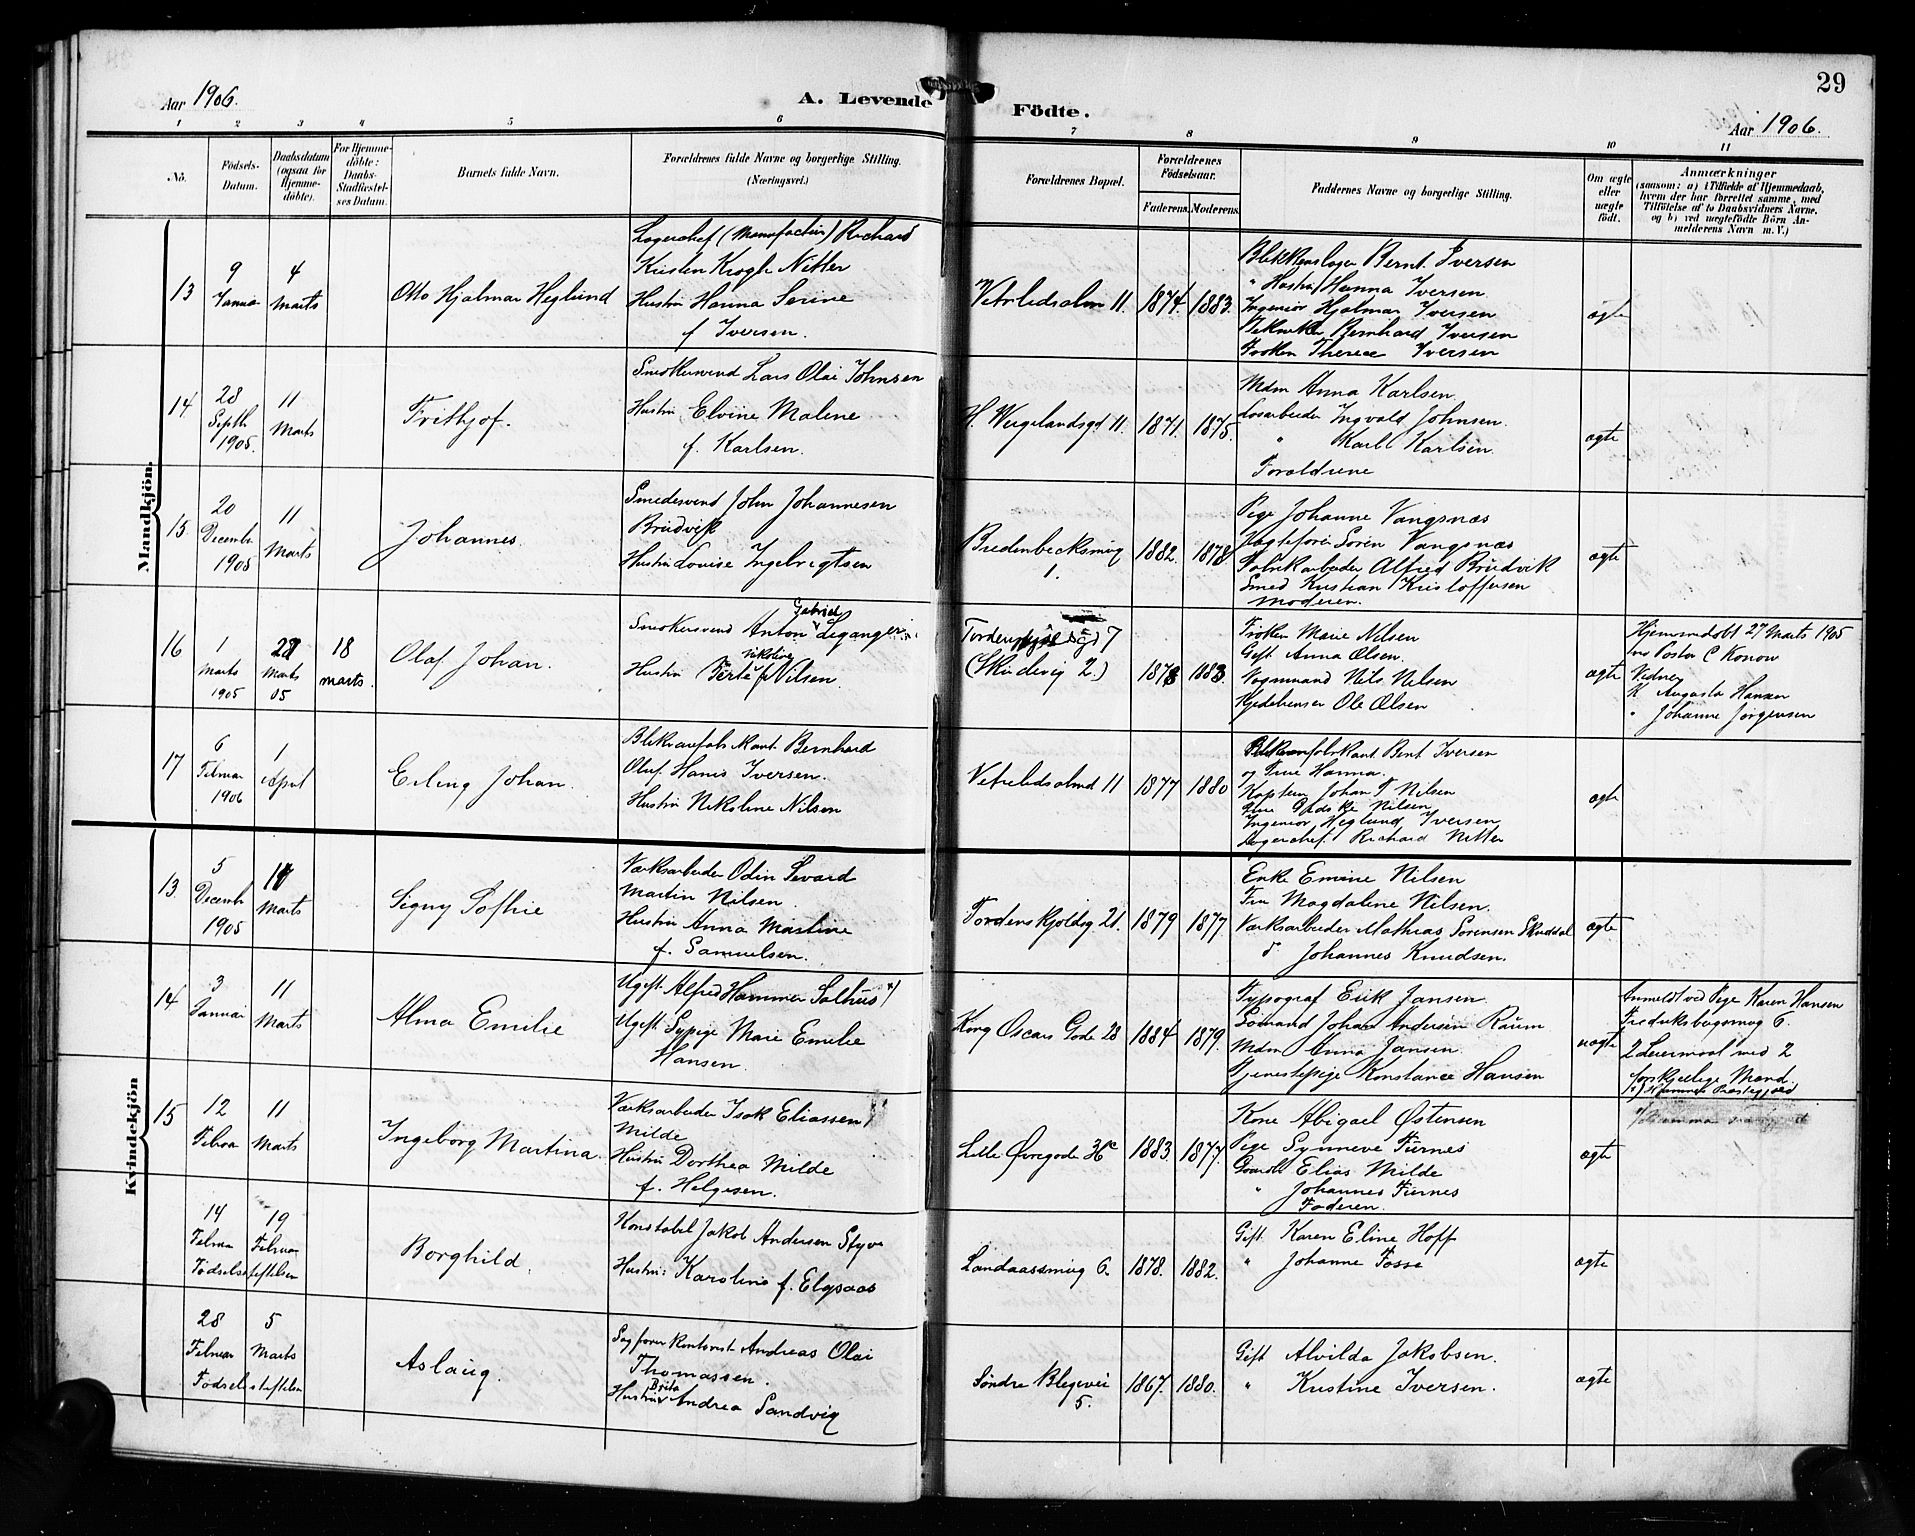 29
Aar 1906.
A. Levende Födte.
Aar 1906.
1 2 3 4 5 6 7 8 9 10 11
No.
Födsels-
Datum.
Daabsdatum
(ogsaa for
Hjemme-
döbte).
For Hjemme-
döbte:
Daabs-
Stadfæstel-
ses Datum.
Barnets fulde Navn.
Forældrenes fulde Navne og borgerlige Stilling.
(Næringsvei.)
Forældrenes Bopæl.
Forældrenes
Födselsaar.
Faderens. Moderens.
Faddernes Navne og borgerlige Stilling.
Om ægte
eller
uægte
födt.
Anmærkninger
(saasom: a) i Tilfælde af Hjemmedaab,
hvem der har forrettet samme, med
Tilföielse af to Daabsvidners Navne.
og b) ved uægtefödte Börn An-
melderens Navn m. V.)
Mandkjön.
13
9
Januar
4
Marts
Otto Hjalmar Heglund
Lagerchef (Manufactur) Richard
Kirsten Krogh Nitter
Hustru Hanna Serine
f. Iversen.
Vetrlidsalm 11.
1874.
1883.
Blikkenslager Bernt Iversen
" Hustru Hanna Iversen
Ingeniör Hjalmar Iversen
Bernhard Iversen
Fröken Therese Iversen
ægte
14
28
Septb
1905.
11
Marts
Frithjof.
Snedkersvend Lars Olai Johnsen
Hustru Elvine Malene
f. Karlsen.
H. Wergelandsgd 11.
1871.
1875.
Mdm Anna Karlsen.
Losarbeider Ingvald Johnsen.
" Karl Karlsen.
Forældrene
ægte
15
20
Decembr
1905
11
Marts
Johannes.
Smedesvend John Johannesen
Brudvik
Hustru Lovise Ingebrigtsen
Bredenbecksmug
1.
1882.
1878
Pige Johanne Vangsnæs
Sören Vangsnæs
Fabrikarbeider Alfred Brudvik
Smed Kristian Kristoffersen
Moderen.
ægte
16
1
Marts
1905
27
Marts
05
18
marts.
Olaf Johan.
Snedkersvend Anton Gabriel Leganger
Hustru Nikoline f. Nilsen.
Tordenskjoldsgd 7
(Skudevig 2.)
1878
1883.
Fröken Marie Nilsen
Gift Anna Olsen.
Vognmand Nils Nilsen
Ole Olsen
ægte
Hjemmedöbt 27 Marts 1905
av Pastor C Konow
Vidner
K Augusta Hansen
" Johanne Jörgensen
17
6
Februar
1906
1
April
Erling Johan.
Blikvarefabrikant Bernhard
Oluf Hanis Iversen.
Hustru Nikoline Nilsen
Vetrlidsalmd 11
1877
1880
Blikvarefabrikant Bent Iversen
og Frue Hanna.
Kaptein Johan T Nilsen
Nilsen
Ingeniör Heglund Iversen
Lagerchef. Richard Nitter
ægte
Kvindekjön
13.
5
Decembr
1905
Marts
Signy Sofhie
Værksarbeider Odin Sevard
Martin Nilsen.
Hustru Anna Martine
f. Samuelsen.
Tordenskjoldsg 21.
1879
1877.
Enke Emine Nilsen
Fru Magdalene Nilsen.
Værksarbeider Mathias Sörensen Skuddal
Johannes Knudsen.
ægte
14
3
Januar
11
Marts
Alma Emilie
Ugift Alfred Hammer Salhus x)
Ugift Sypige Marie Emelie
Hansen.
Kong Oscars Gade 28
1884
1879.
Typograf Erik Jansen.
Sömand Johan Andersen Raum
Mdm Anna Jansen.
Tjenestepige Konstance Hansen
uægte
Anmeldt ved Pige Karen Hansen
Fredriksbergsmug 6.
2 Leiermaal med 2
forskjellige Mænd
x) Hammer Præstegjæld
15
12
Februar
11
Marts
Ingeborg Martina.
Værksarbeider Isak Eliassen
Milde
Hustru Dorthea Milde
f. Helgesen.
Lille Øvregade 36c
1883.
1877.
Kone Abigael Østensen
Pige Synneve Furnes
Elias Milde
" Johannes Furnes
Faderen.
ægte
14
Februar
19
Februar
Födselsstiftelsen
Borghild.
Konstabel Jakob Andersen Styve
Hustru: Karoline f. Elgsaas
Landaassmug 6.
1878.
1882.
Gift Karen Eline Hoff
" Johanne Fosse
ægte
28
Februar
5
Marts
Födselsstiftelsen
Aslaug.
Sagförer Kontorist Andreas Olai
Thomassen.
Hustru Brita Andrea Sandvig
Söndre Blegevei
5.
1867.
1880.
Gift Alvilda Jakobsen.
" Kristine Iversen.
ægte